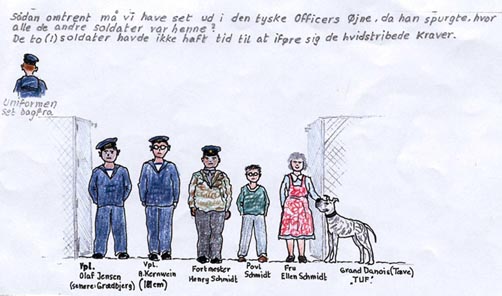 Sådan omtrent må vi have set ud i den tyske Officers Øjne, da han spurgte, hvor
alle de andre soldater var henne?
De to (!) soldater havde ikke haft tid til at iføre sig de hvidstribede Kraver.
Uniformen
set bagfra
Vpl.
Olaf Jensen
(senere: Grædbjerg)
Vpl.
A. Kernwein
(181 cm)
Fortmester
Henry Schmidt
Povl
Schmidt
Fru
Ellen Schmidt
Grand Danois (Tæve)
"TUF"